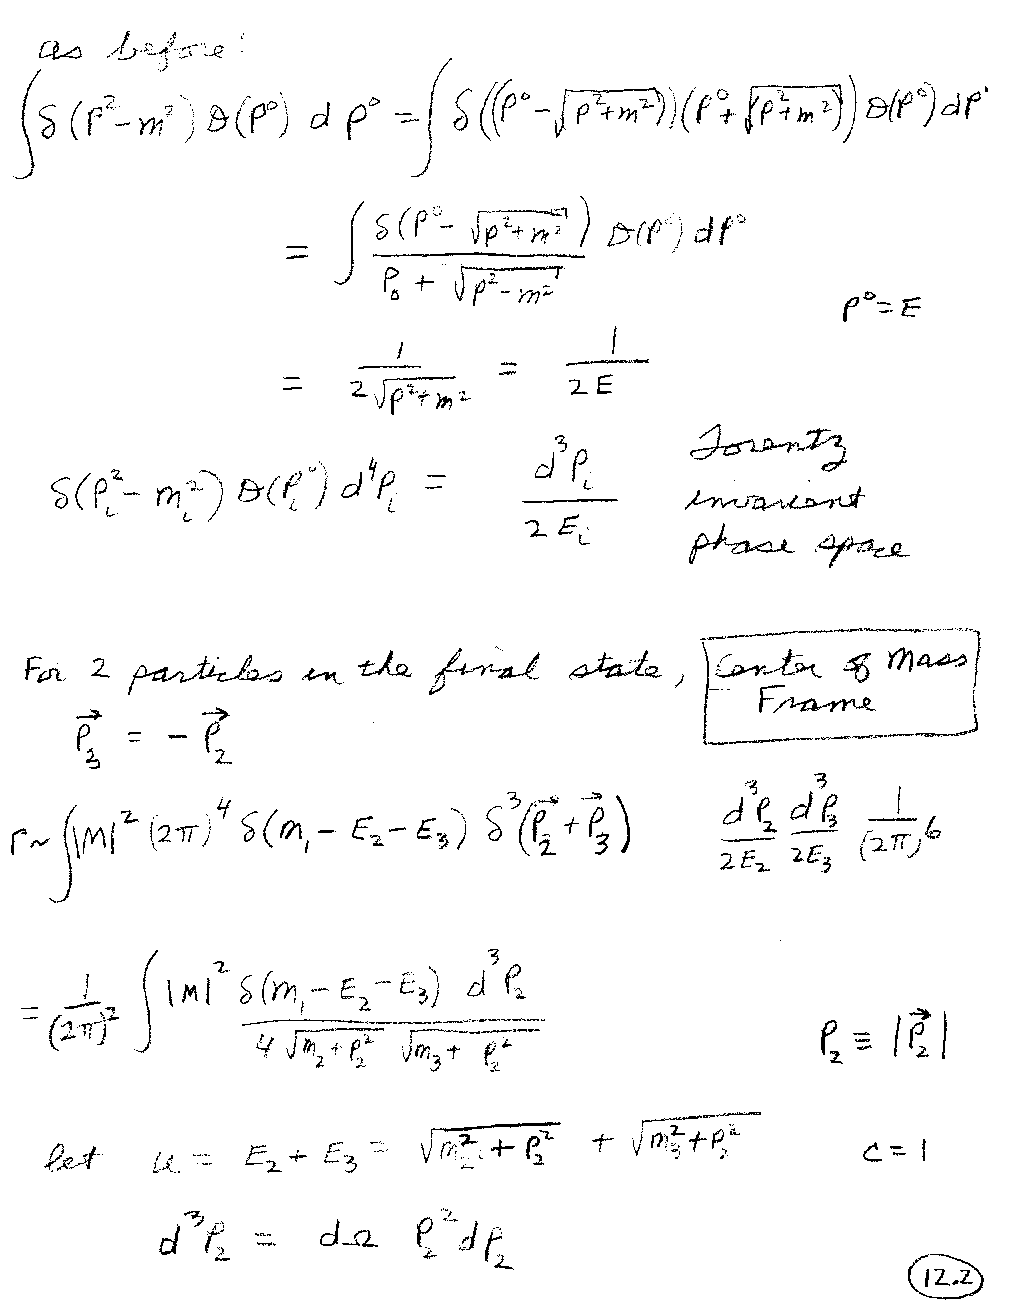 as before:
∫ δ(p²-m²) θ(p⁰) d p⁰ = ∫ δ((p⁰-√(p²+m²))(p⁰+√(p²+m²))) θ(p⁰) dp⁰
= ∫ δ(p⁰-√(p²+m²)) / (p₀+√(p²-m²)) θ(p⁰) dp⁰
p⁰=E
= 1/(2√(p²+m²)) = 1/(2E)
δ(pᵢ²-mᵢ²) θ(pᵢ⁰) d⁴pᵢ = d³pᵢ/(2Eᵢ) Lorentz
invariant
phase space
For 2 particles in the final state, Center of Mass
Frame
p⃗₃ = -p⃗₂
Γ~ ∫|M|² (2π)⁴ δ(m₁-E₂-E₃) δ³(p⃗₂+p⃗₃) d³p₂/(2E₂) d³p₃/(2E₃) 1/(2π)⁶
= 1/(2π)² ∫ |M|² δ(m₁-E₂-E₃) d³p₂ / (4√(m₂+p₂²) √(m₃+p₂²))
p₂ ≡ |p⃗₂|
let u = E₂+E₃ = √(m₂²+p₂²) + √(m₃²+p₂²) c=1
d³p₂ = dΩ p₂² dp₂
12.2